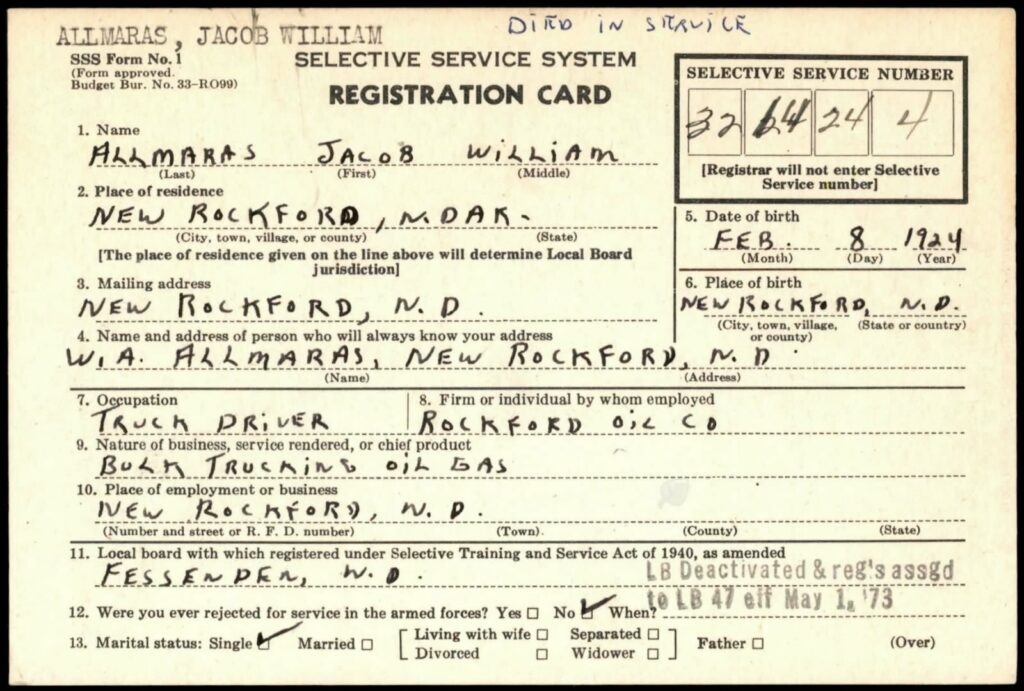 ALLMARAS, JACOB WILLIAM
DIED IN SERVICE
SSS Form No. 1
(Form approved.
Budget Bur. No. 33-RO99)
SELECTIVE SERVICE SYSTEM
REGISTRATION CARD
SELECTIVE SERVICE NUMBER
32 64 24 4
[Registrar will not enter Selective
Service number]
1. Name
ALLMARAS JACOB WILLIAM
(Last) (First) (Middle)
2. Place of residence
NEW ROCKFORD, N. DAK.
(City, town, village, or county) (State)
[The place of residence given on the line above will determine Local Board
jurisdiction]
5. Date of birth
FEB. 8 1924
(Month) (Day) (Year)
3. Mailing address
NEW ROCKFORD, N. D.
6. Place of birth
NEW ROCKFORD, N. D.
(City, town, village, (State or country)
or county)
4. Name and address of person who will always know your address
W. A. ALLMARAS, NEW ROCKFORD, N. D.
(Name) (Address)
7. Occupation
TRUCK DRIVER
8. Firm or individual by whom employed
ROCKFORD OIL CO
9. Nature of business, service rendered, or chief product
BULK TRUCKING OIL GAS
10. Place of employment or business
NEW ROCKFORD, N. D.
(Number and street or R. F. D. number) (Town). (County) (State)
11. Local board with which registered under Selective Training and Service Act of 1940, as amended
FESSENDEN, N. D.
LB Deactivated & reg's assgd
to LB 47 eff May 1, '73
12. Were you ever rejected for service in the armed forces? Yes □ No ☑ When?
13. Marital status: Single ☑ Married □ [ Living with wife □ Separated □ ] Father □ (Over)
Divorced □ Widower □